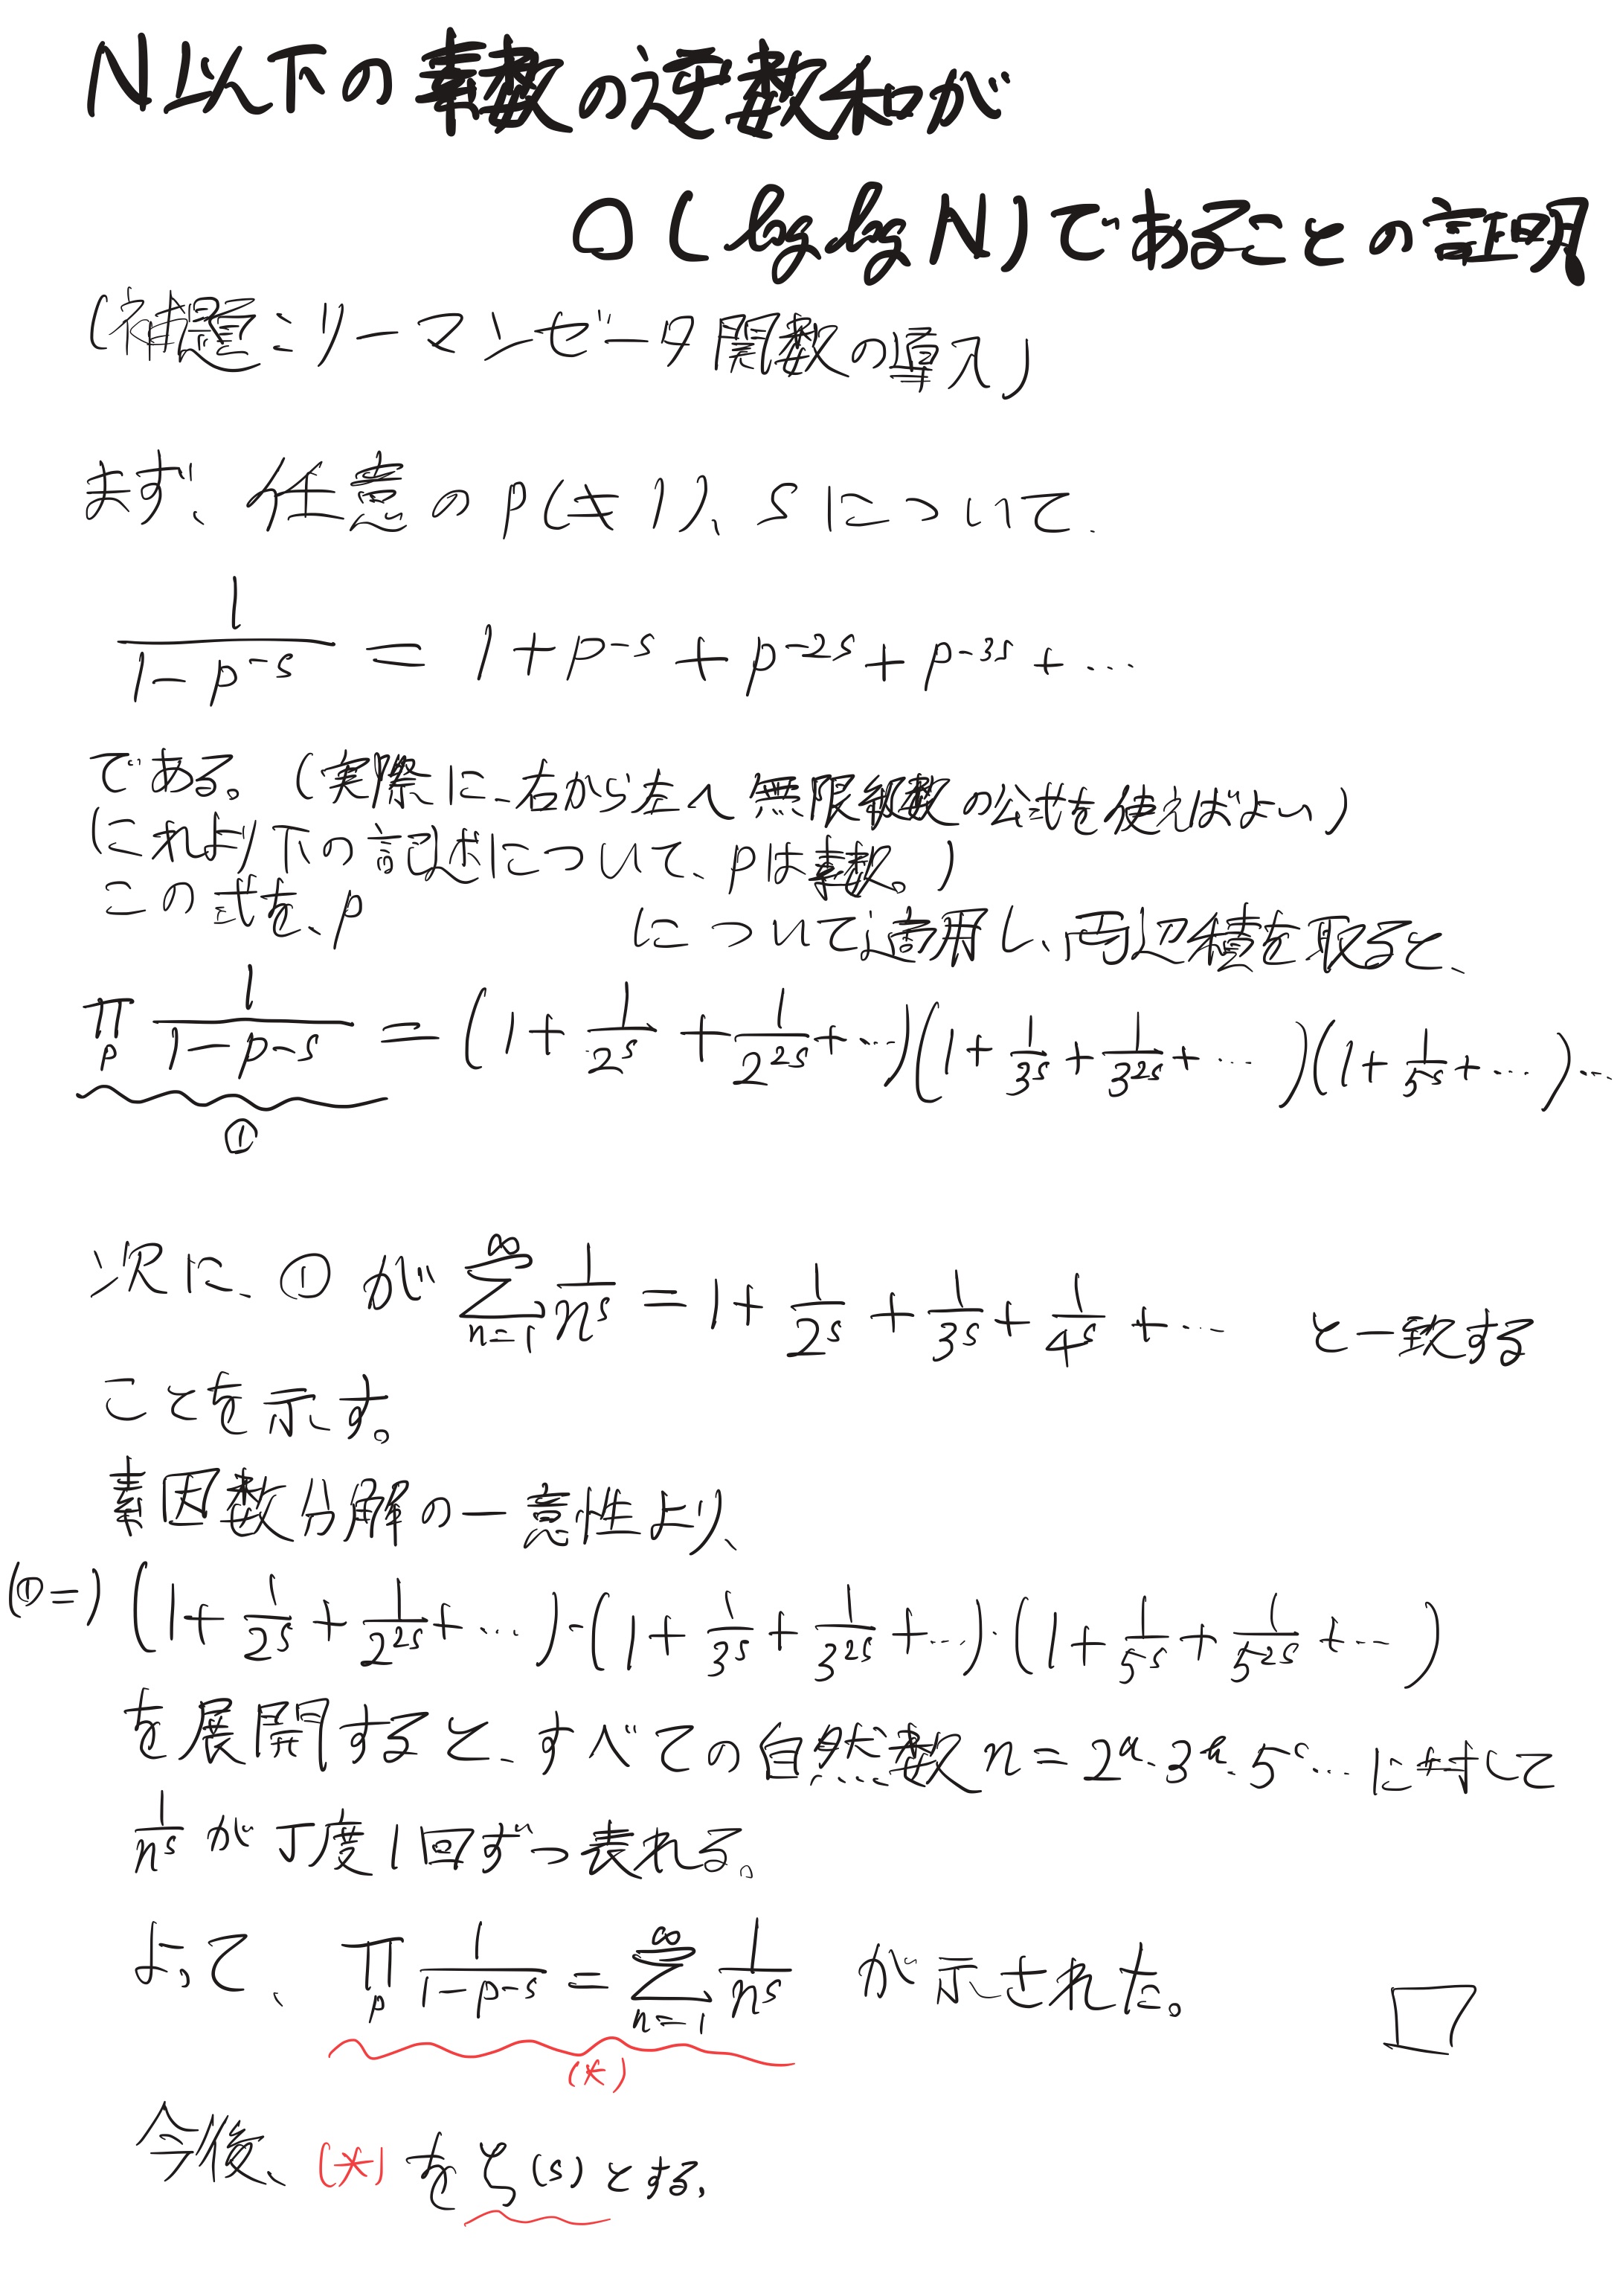 N以下の素数の逆数和が
O(log log N)であることの証明
(補題:リーマンゼータ関数の導入)
まず、任意のp(≠1)、sについて、
1/(1-p^{-s}) = 1+p^{-s}+p^{-2s}+p^{-3s}+…
である。(実際に、右から左へ無限級数の公式を使えばよい)
(これより下の記述について、pは素数。)
この式を、p について適用し、両辺積を取ると、
∏_p 1/(1-p^{-s}) = (1+1/2^s+1/2^{2s}+…)(1+1/3^s+1/3^{2s}+…)(1+1/5^s+…)…
①
次に、①が ∑_{n=1}^∞ 1/n^s = 1+1/2^s+1/3^s+1/4^s+… と一致する
ことを示す。
素因数分解の一意性より、
(①=) (1+1/2^s+1/2^{2s}+…)·(1+1/3^s+1/3^{2s}+…)·(1+1/5^s+1/5^{2s}+…)
を展開すると、すべての自然数n=2^a·3^b·5^c…に対して
1/n^s が丁度1回ずつ表れる。
よって、 ∏_p 1/(1-p^{-s}) = ∑_{n=1}^∞ 1/n^s が示された。 □
(*)
今後、(*)をζ(s)とする。